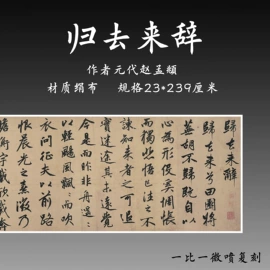 归去来辞
作者元代赵孟頫
材质绢布 规格23*239厘米
歸去来辭
歸去来兮田園將
蕪胡不歸既自以
心為形役奚惆悵
而獨悲悟已往之不
諫知来者之可追
實迷途其未遠覺
今是而昨非舟遥
以輕颺風飄飄而吹
衣問征夫以前路
恨晨光之熹微乃
瞻衡宇載欣載
一比一微喷复刻